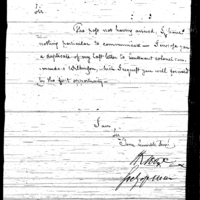 Sir
The post not having arrived, I have
nothing particular to communicate — I enclose you
a duplicate of my last letter to lieutenant colonel
which I request you will forward
by the first opportunity.
I am
Sir
Your humble Serv.